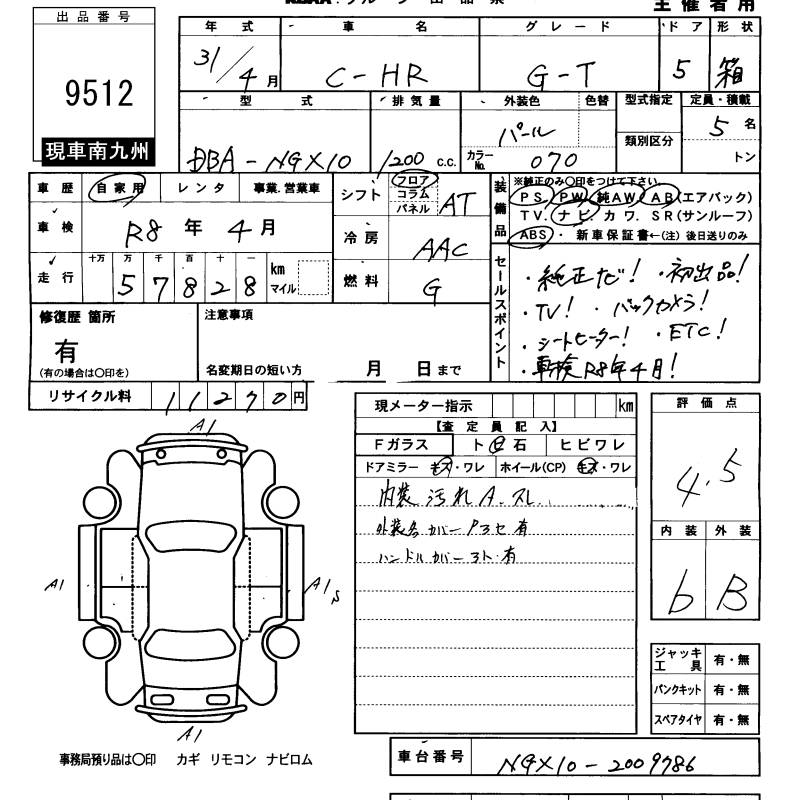 主催者用
出品番号
9512
現車南九州
年式 車名 グレード ドア 形状
31/4月 C-HR G-T 5 箱
型式 排気量 外装色 色替 型式指定 定員・積載
類別区分
DBA-NGX10 1200 c.c. パール カラーNo. 070 5名
トン
車歴 自家用 レンタ 事業.営業車
車検 R8年4月
走行 十万 万 千 百 十 一
57828 km マイル
シフト フロア コラム パネル AT
冷房 AAC
燃料 G
装備品 ※純正のみ〇印をつけて下さい。
PS. PW. 純AW. AB(エアバック)
TV. ナビ. カワ. SR(サンルーフ)
ABS・新車保証書←(注)後日送りのみ
セールスポイント
・純正ナビ! ・初出品!
・TV! ・バックカメラ!
・シートヒーター! ・ETC!
・車検R8年4月!
修復歴 箇所 注意事項
有
(有の場合は〇印を) 名変期日の短い方 月 日まで
リサイクル料 11270円
現メーター指示 km
【査定員記入】
Fガラス ト 石 ヒビワレ
ドアミラー キズ・ワレ ホイール(CP) キズ・ワレ
内装 汚れA.スレ
外装色カバーP3セ有
ハンドルカバー3ト.有
評価点
4.5
内装 外装
b B
A1
A1
A1s
A1
ジャッキ工具 有・無
パンクキット 有・無
スペアタイヤ 有・無
事務局預り品は〇印 カギ リモコン ナビロム
車台番号 NGX10-2009786